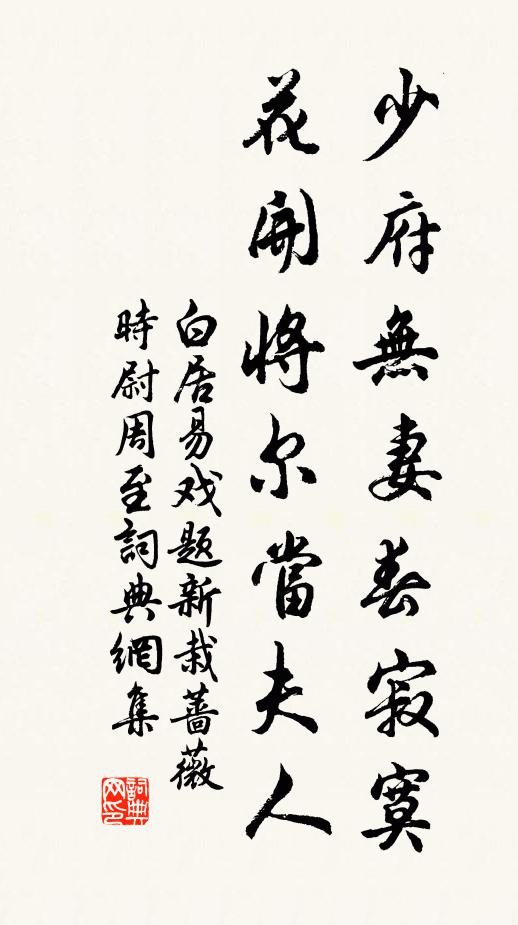 少府無妻春寂寞
花開將尔當夫人
白居易戏题新栽蔷薇
時尉周至詞典網集
詞典网印